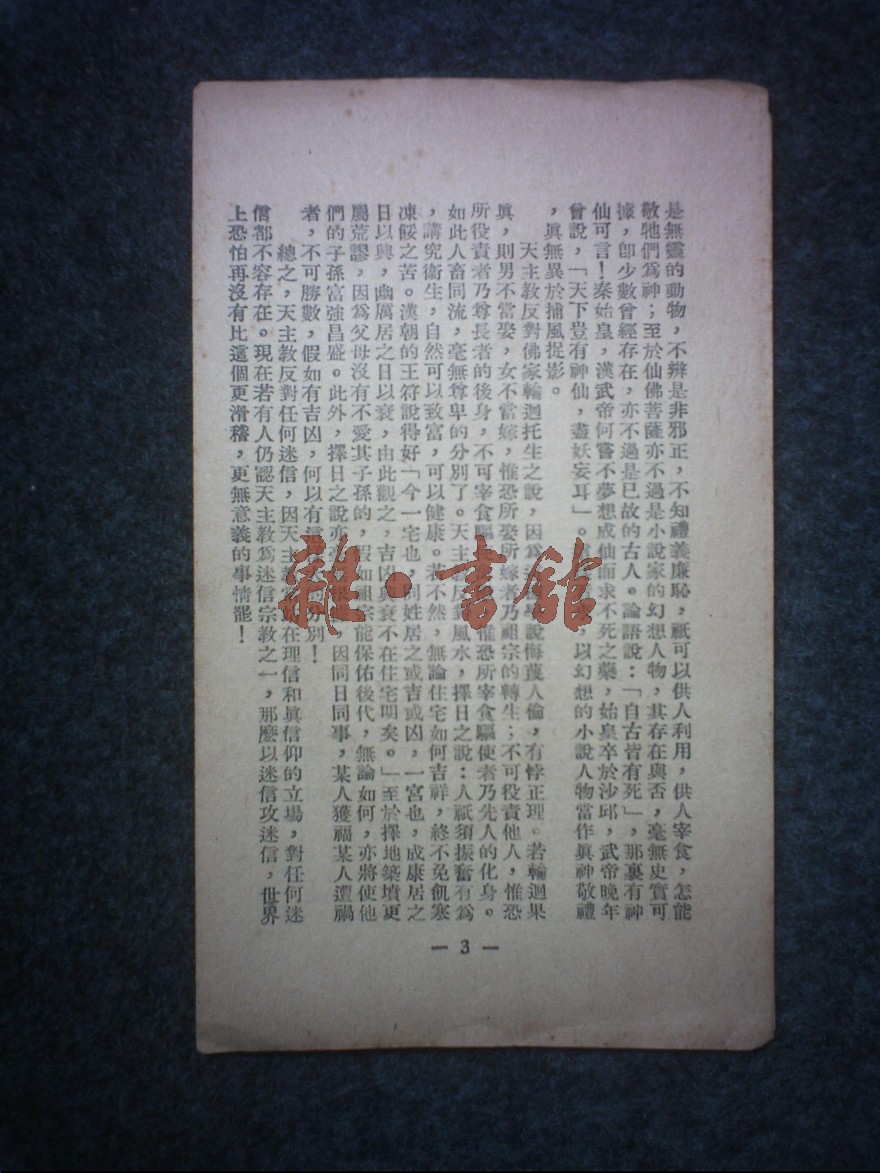 是無靈的動物，不辨是非邪正，不知禮義廉恥，祇可以供人利用，供人宰食，怎能
敬牠們爲神；至於仙佛菩薩亦不過是小說家的幻想人物，其存在與否，毫無史實可
據，卽少數曾經存在，亦不過是已故的古人。論語說：「自古皆有死」，那裏有神
仙可言！秦始皇，漢武帝何嘗不夢想成仙而求不死之藥，始皇卒於沙邱，武帝晚年
曾說，「天下豈有神仙，盡妖妄耳」。以幻想的小說人物當作眞神敬禮
，眞無異於捕風捉影。
天主敎反對佛家輪迴托生之說，因爲學說侮蔑人倫，有悖正理。若輪迴果
眞，則男不當娶，女不當嫁，惟恐所娶所嫁者乃祖宗的轉生；不可役責他人，惟恐
所役責者乃尊長者的後身，不可宰食驅惟恐所宰食驅使者乃先人的化身。
如此人畜同流，毫無尊卑的分別了。天主敎反對風水，擇日之說：人祇須振奮有爲
，講究衞生，自然可以致富，可以健康。若不然，無論住宅如何吉祥，終不免飢寒
凍餒之苦。漢朝的王符說得好「今一宅也，同姓居之或吉或凶，一宮也，成康居之
日以興，幽厲居之日以衰，由此觀之，吉凶興衰不在住宅明矣。」至於擇地築墳更
屬荒謬，因爲父母沒有不愛其子孫的，假如祖宗能保佑後代，無論如何，亦將使他
們的子孫富強昌盛。此外，擇日之說亦，因同日同事，某人獲福某人遭禍
者，不可勝數，假如有吉凶，何以有的分別！
總之，天主敎反對任何迷信，因天主敎在理信和眞信仰的立場，對任何迷
信都不容存在。現在若有人仍認天主敎爲迷信宗敎之一，那麼以迷信攻迷信，世界
上恐怕再沒有比這個更滑稽，更無意義的事情罷！
— 3 —
雜·書館